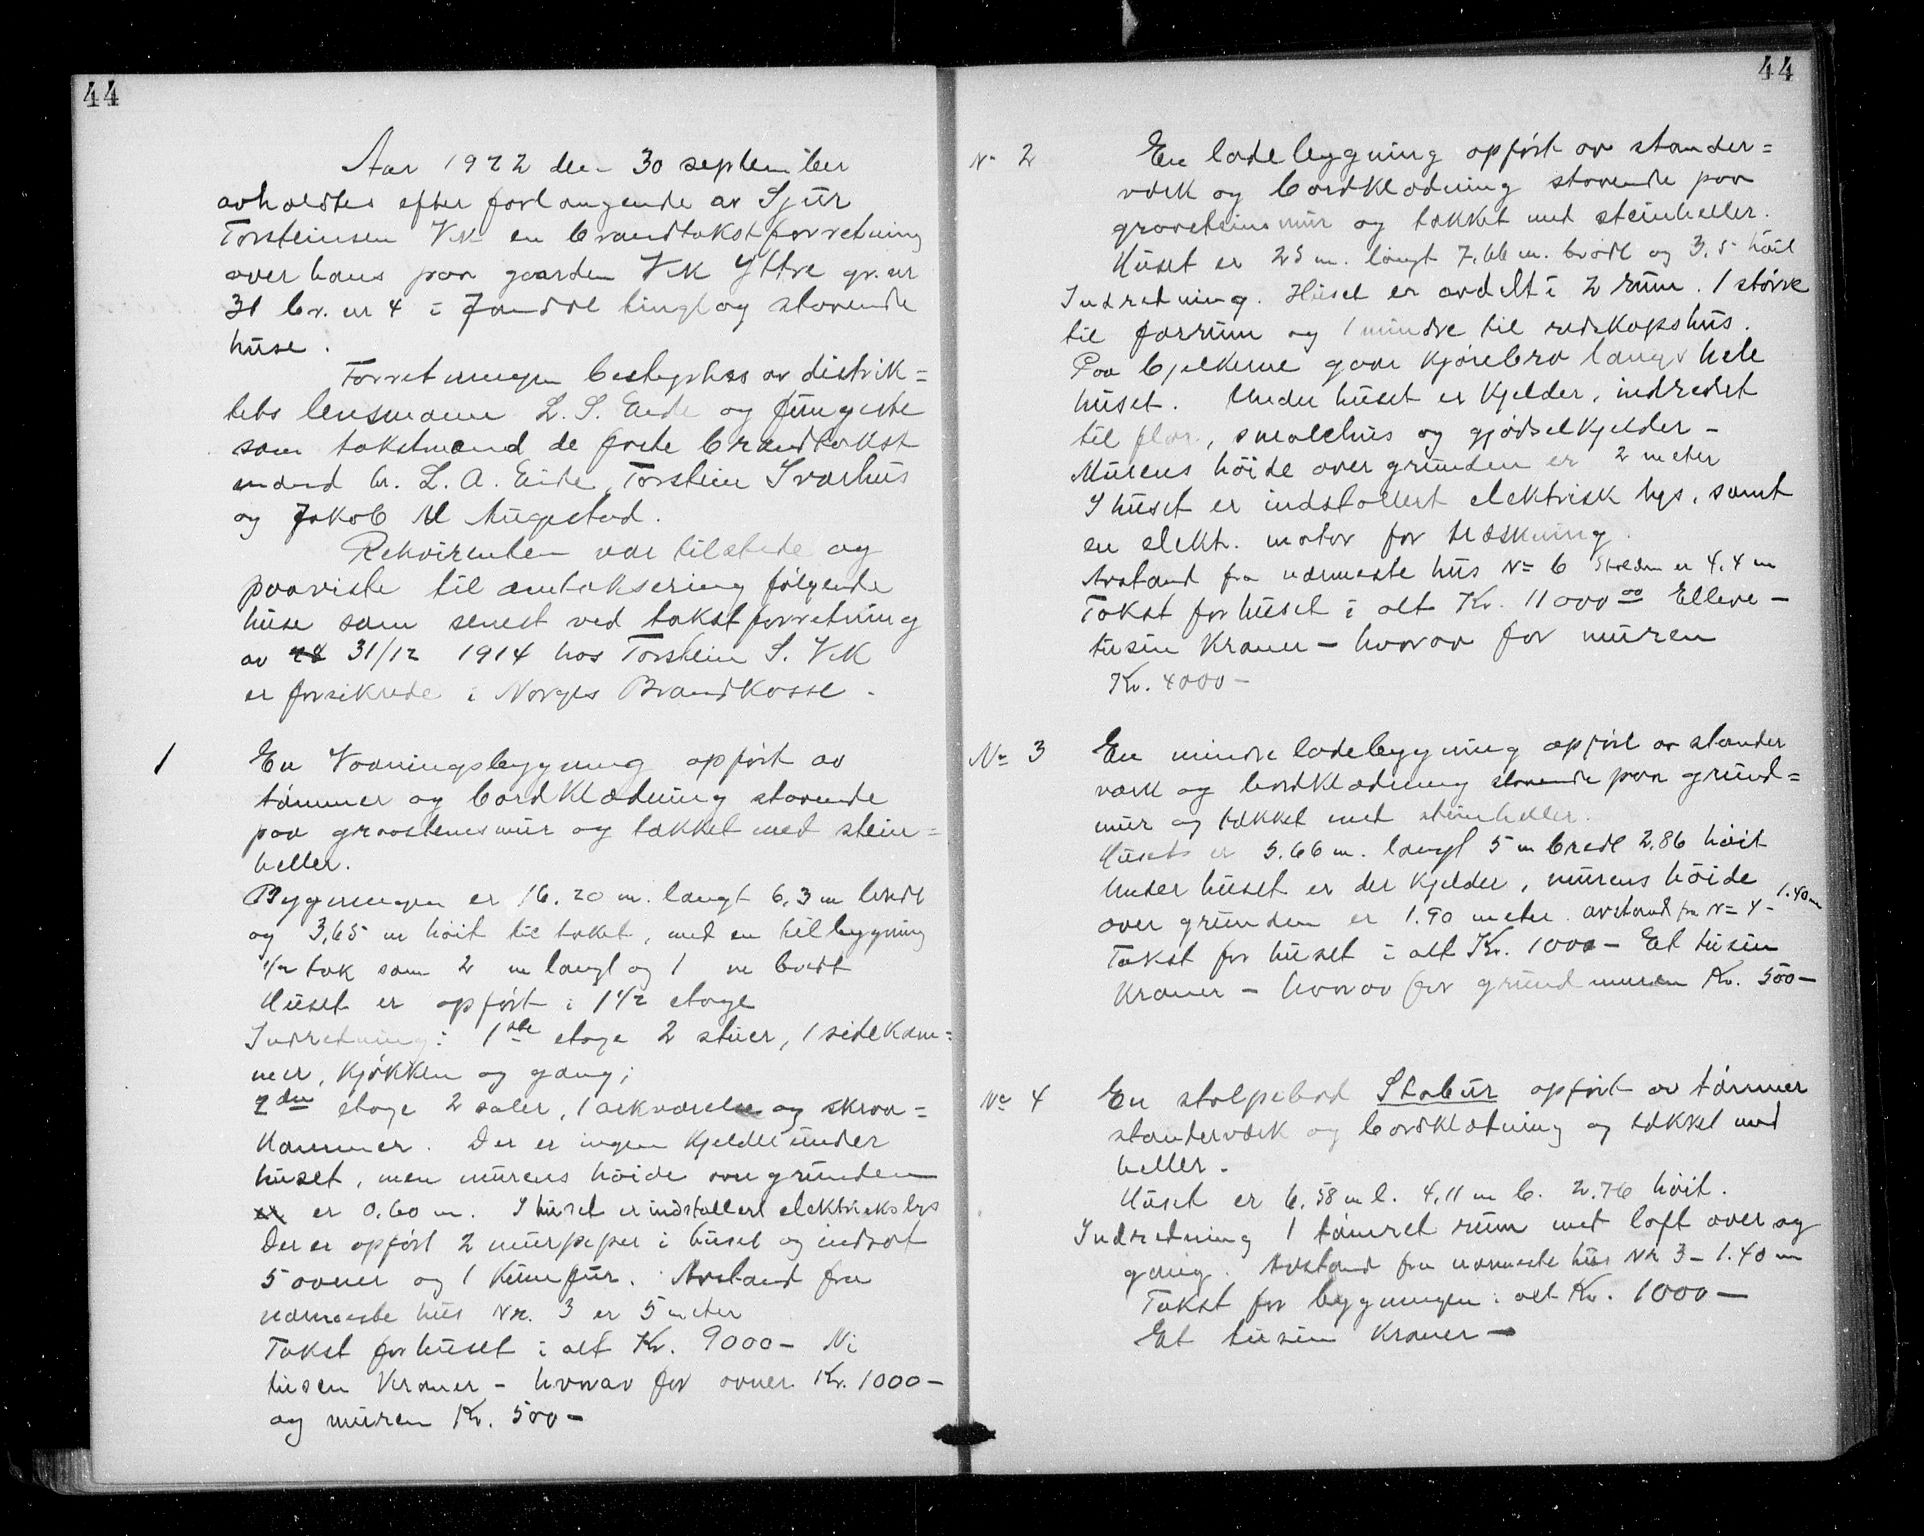 44
Aar 1922 den 30 september
avholdtes efter forlangende av Sjur
Torsteinsen Vik en brandtakstforretning
over hans paa gaarden Vik Yttre gr. nr
31 br. nr 4 i Jondal tinglag staaende
huse.
Forretningen bestyrtes av distrik=
tets lensmann L. S. Eide og fungerte
som takstmænd de faste brandtakst
mænd hr. L. A. Eide, Torstein Svarhus
og Jakob M Augestad.
Rekvirenten var tilstede og
paaviste til omtaksering følgende
huse som senest ved takstforretning
av 31/12 1914 hos Torstein S. Vik
er forsikrede i Norges Brandkasse.
1 En Vaaningsbygning opført av
tømmer og bordklædning staaende
paa graastensmur og tækket med stein=
heller.
Bygningen er 16.20 m. langt 6,3 m bredt
og 3,65 m høit til taket, med en tilbygning
1/2 tak som 2 m langt og 1 m bredt
Huset er opført i 1 1/2 etage
Indretning: 1ste etage 2 stuer, 1 sidekam=
mer, kjøkken og gang;
2den etage 2 saler, 1 arkværelse og skraa=
kammer. Der er ingen kjelder under
huset, men murens høide over grunden
er 0.60 m. I huset er indstallert elektriskslys
Der er opført 2 murpiper i huset og indsat
5 ovner og 1 komfur. Avstand fra
nærmeste hus Nr. 3 er 5 meter
Takst for huset i alt Kr. 9000 – Ni
tusen Kroner – hvorav for ovner Kr. 1000 –
og muren Kr. 500 –
44
No 2 En ladebygning opført av stander=
værk og bordklædning staaende paa
graasteinsmur og tækket med steinheller.
Huset er 25 m. langt 7,66 m. bredt og 3,5 høit
Indretning. Huset er avdelt i 2 rum. 1 større
til forrum og 1 mindre til redskapshus.
Paa bjelkerne gaar kjørebro langs hele
huset. Under huset er kjelder, indredet
til flor, smalehus og gjødselkjelder –
Murens høide over grunden er 2 meter
I huset er indstallert elektrisk lys, samt
en elekt. motor for træskning.
Avstand fra nærmeste hus No 6 er 4.4 m
Takst for huset i alt Kr. 11000 00 Elleve –
tusin Kroner – hvorav for muren
Kr. 4000 –
No 3 En mindre ladebygning opført av stander
værk og bordklædning staaende paa grund=
mur og tækket med steinheller.
Huset er 5.66 m. langt 5 m bredt 2,86 høit
Under huset er der kjelder, murens høide
over grunden er 1.90 meter. avstand fra No 4 – 1.40 m
Takst for huset i alt Kr. 1000 – Et tusin
Kroner – hvorav for grundmuren Kr. 500 –
No 4 En stolpebod Stabur opført av tømmer
standerværk og bordklædning og tækket med
heller.
Huset er 6,58 m l. 4,11 m b. 2.76 høit.
Indretning 1 tømret rum med loft over og
gang. Avstand fra nærmeste hus Nr 3 – 1.40 m
Takst for bygningen i alt Kr. 1000 –
Et tusin Kroner –